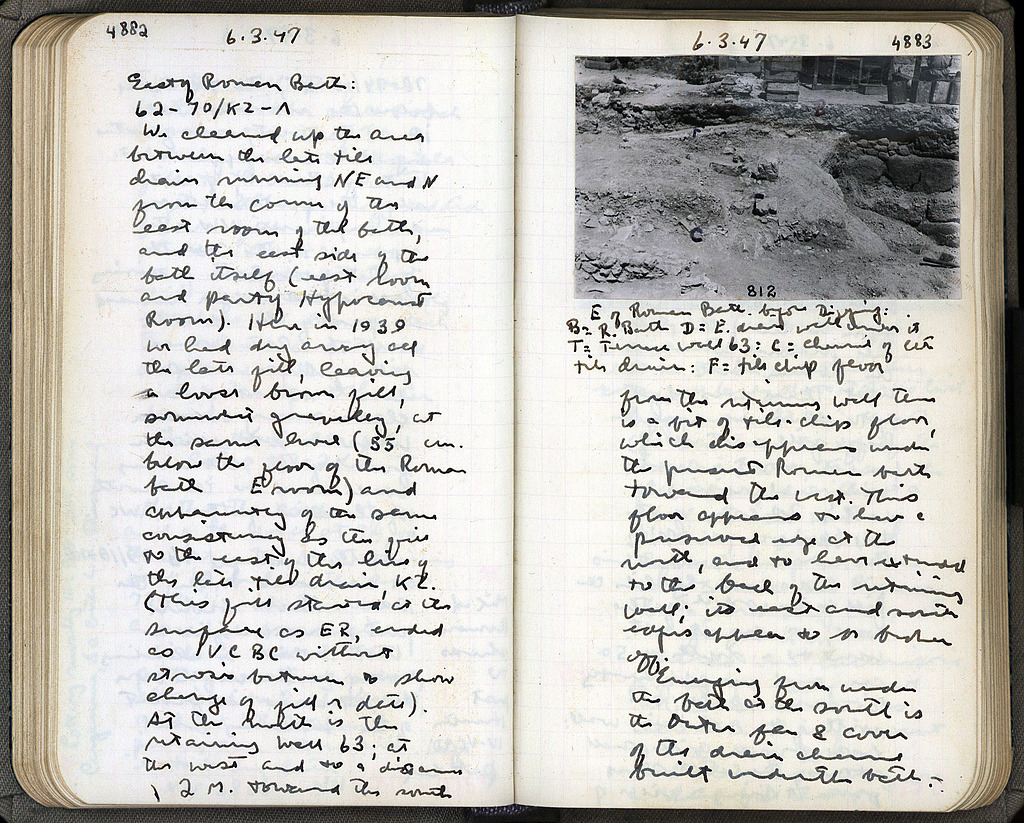 4882
6.3.47
East of Roman Bath:
62-70/KZ-Λ
We cleaned up the area
between the late tile
drains running NE and N
from the corner of the
east room of the bath,
and the east side of the
bath itself (east room
and partly Hypocaust
Room). Here in 1939
we had dug away all
the late fill, leaving
a loose brown fill,
somewhat gravelley, at
the same level (55 cm.
below the floor of the Roman
bath E room) and
apparently of the same
consistency as the fill
to the east of the line of
the late tile drain, KZ.
(This fill started at the
surface as ER, ended
as IV C BC without
strosis between to show
change of fill & date).
At the north is the
retaining wall 63; at
the west and to a distance
2 M. toward the south
6.3.47
4883
F
C
812
E of Roman Bath before Digging:
B= R. Bath D= E. drain
T= Terrace wall 63: C= channel of late
tile drain: F= tile chip floor
from the retaining wall there
is a bit of tile-chip floor,
which disappears under
the present Roman bath
toward the west. This
floor appears to have a
preserved edge at the
north, and to have extended
to the back of the retaining
wall; its east and south
edges appear to be broken
off.
Emerging from under
the bath at the south is
the outer face & cover
of the drain channel
built under the bath -